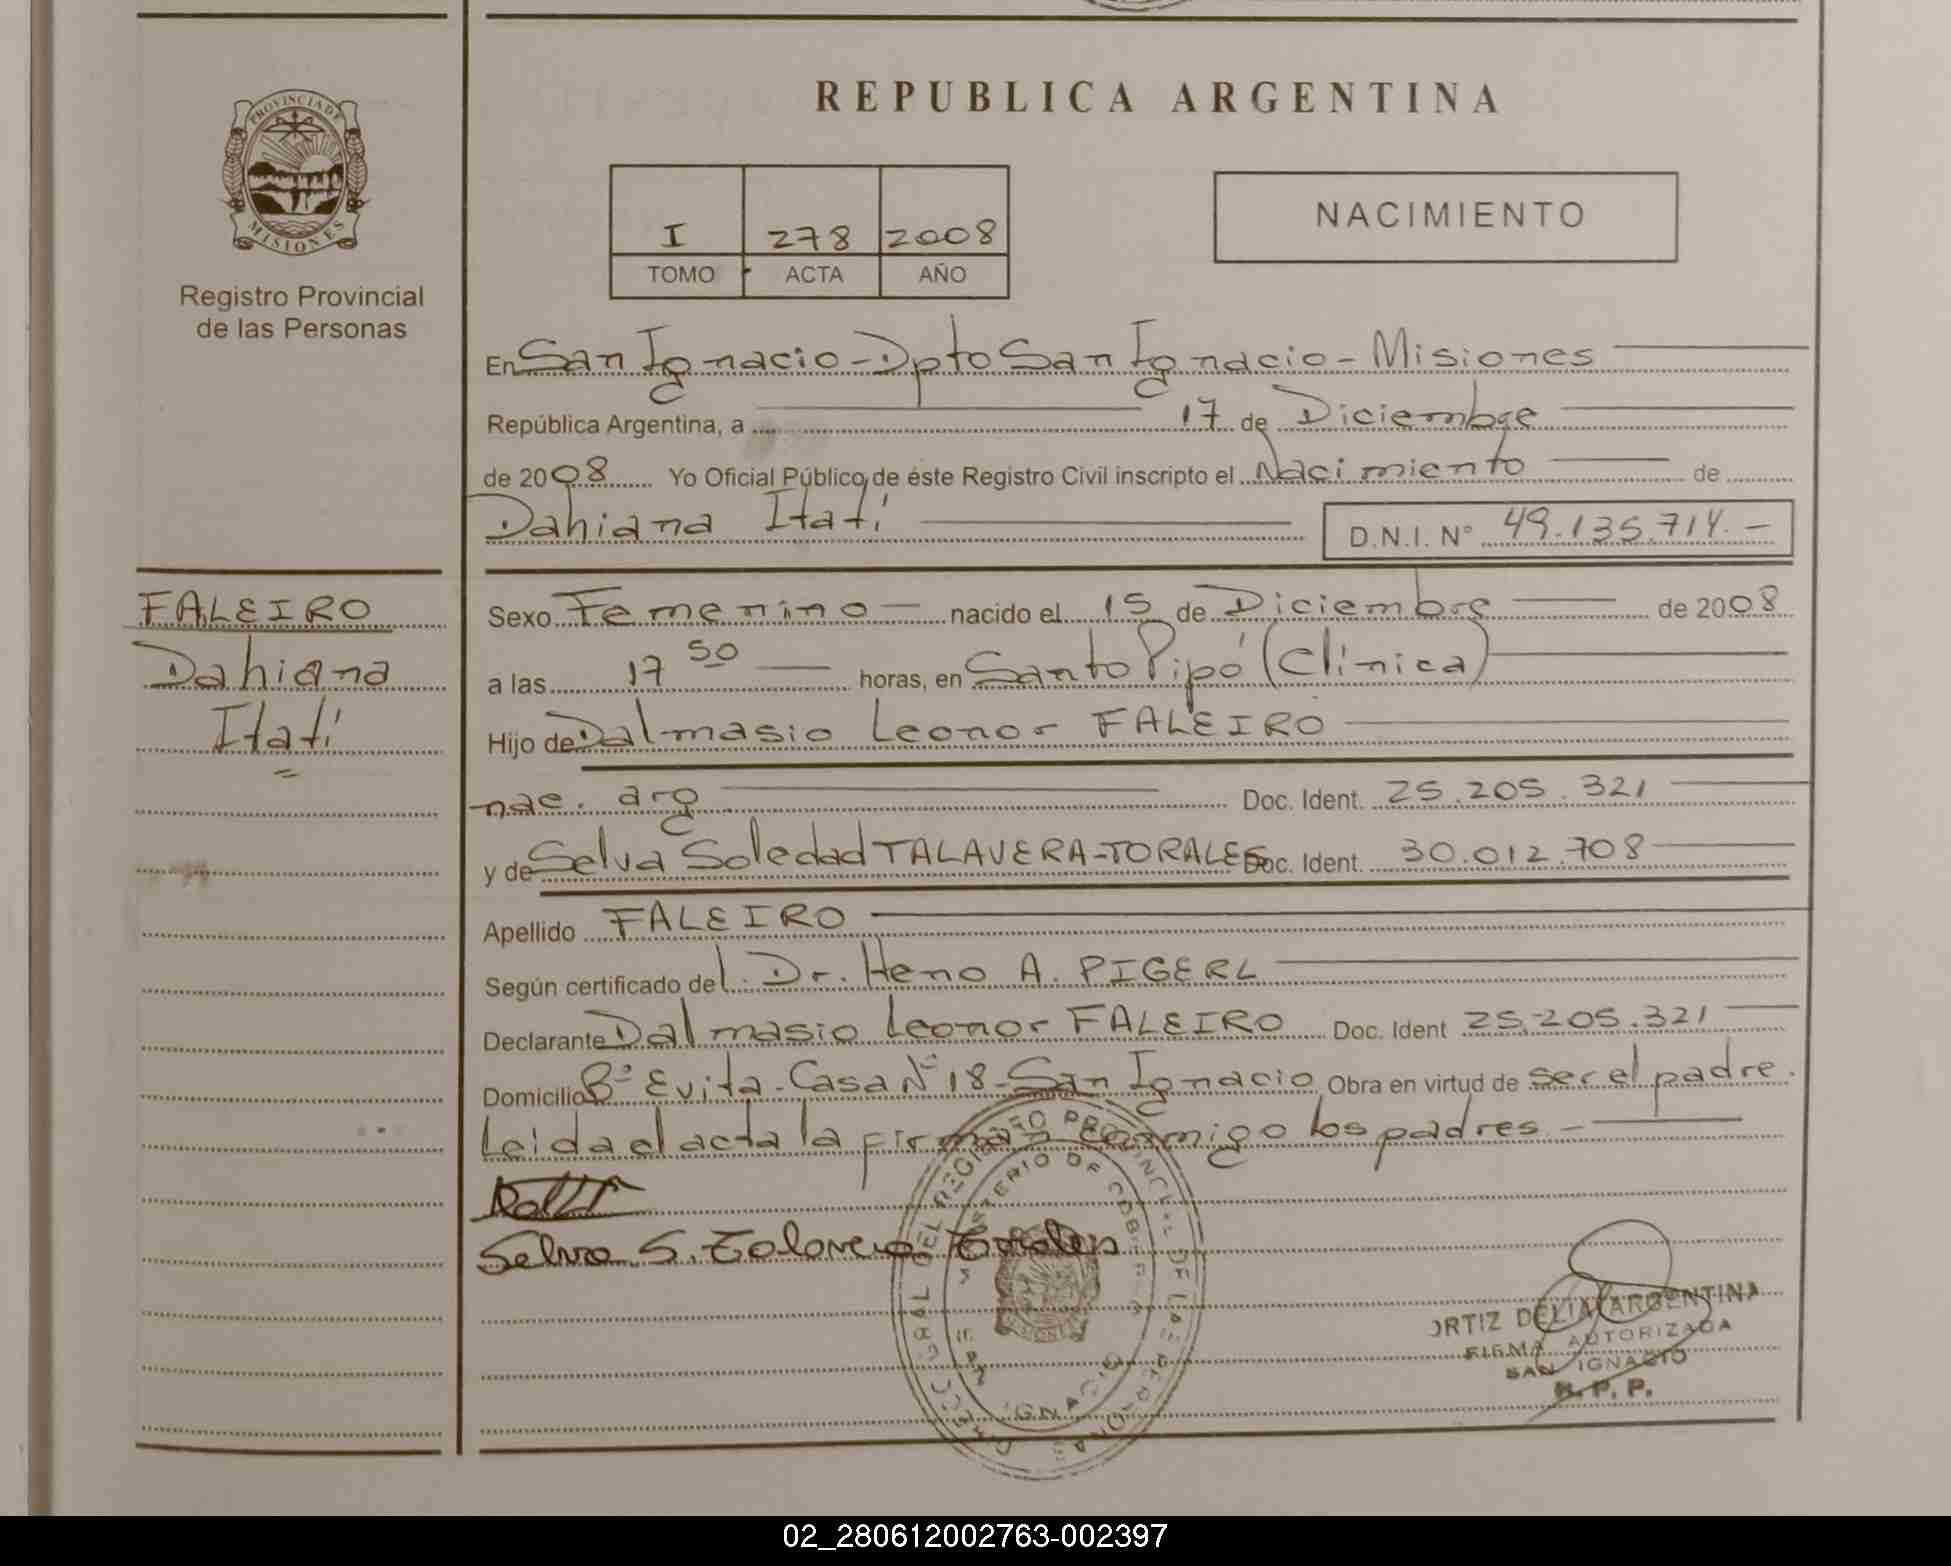 REPUBLICA ARGENTINA
PROVINCIA DE MISIONES
Registro Provincial
de las Personas
I 278 2008
TOMO ACTA AÑO
NACIMIENTO
En San Ignacio - Dpto San Ignacio - Misiones
República Argentina, a 17 de Diciembre
de 2008 Yo Oficial Público de éste Registro Civil inscripto el Nacimiento de
Dahiana Itatí D.N.I. Nº 49.135.714.-
FALEIRO
Dahiana
Itatí
Sexo Femenino nacido el 15 de Diciembre de 2008
a las 17 50 horas, en Santo Pipó (Clínica)
Hijo de Dalmasio Leonor FALEIRO
nac. arg Doc. Ident. 25.205.321
y de Selva Soledad TALAVERA-TORALES Doc. Ident. 30.012.708
Apellido FALEIRO
Según certificado del Dr. Heno A. PIGERL
Declarante Dalmasio Leonor FALEIRO Doc. Ident 25.205.321
Domicilio Bº Evita - Casa Nº 18 - San Ignacio Obra en virtud de ser el padre.
Leida el acta la firman conmigo los padres -
Selva S. Talavera Torales
ORTIZ DELIA ARGENTINA
FIRMA AUTORIZADA
SAN IGNACIO
R. P. P.
02_280612002763-002397